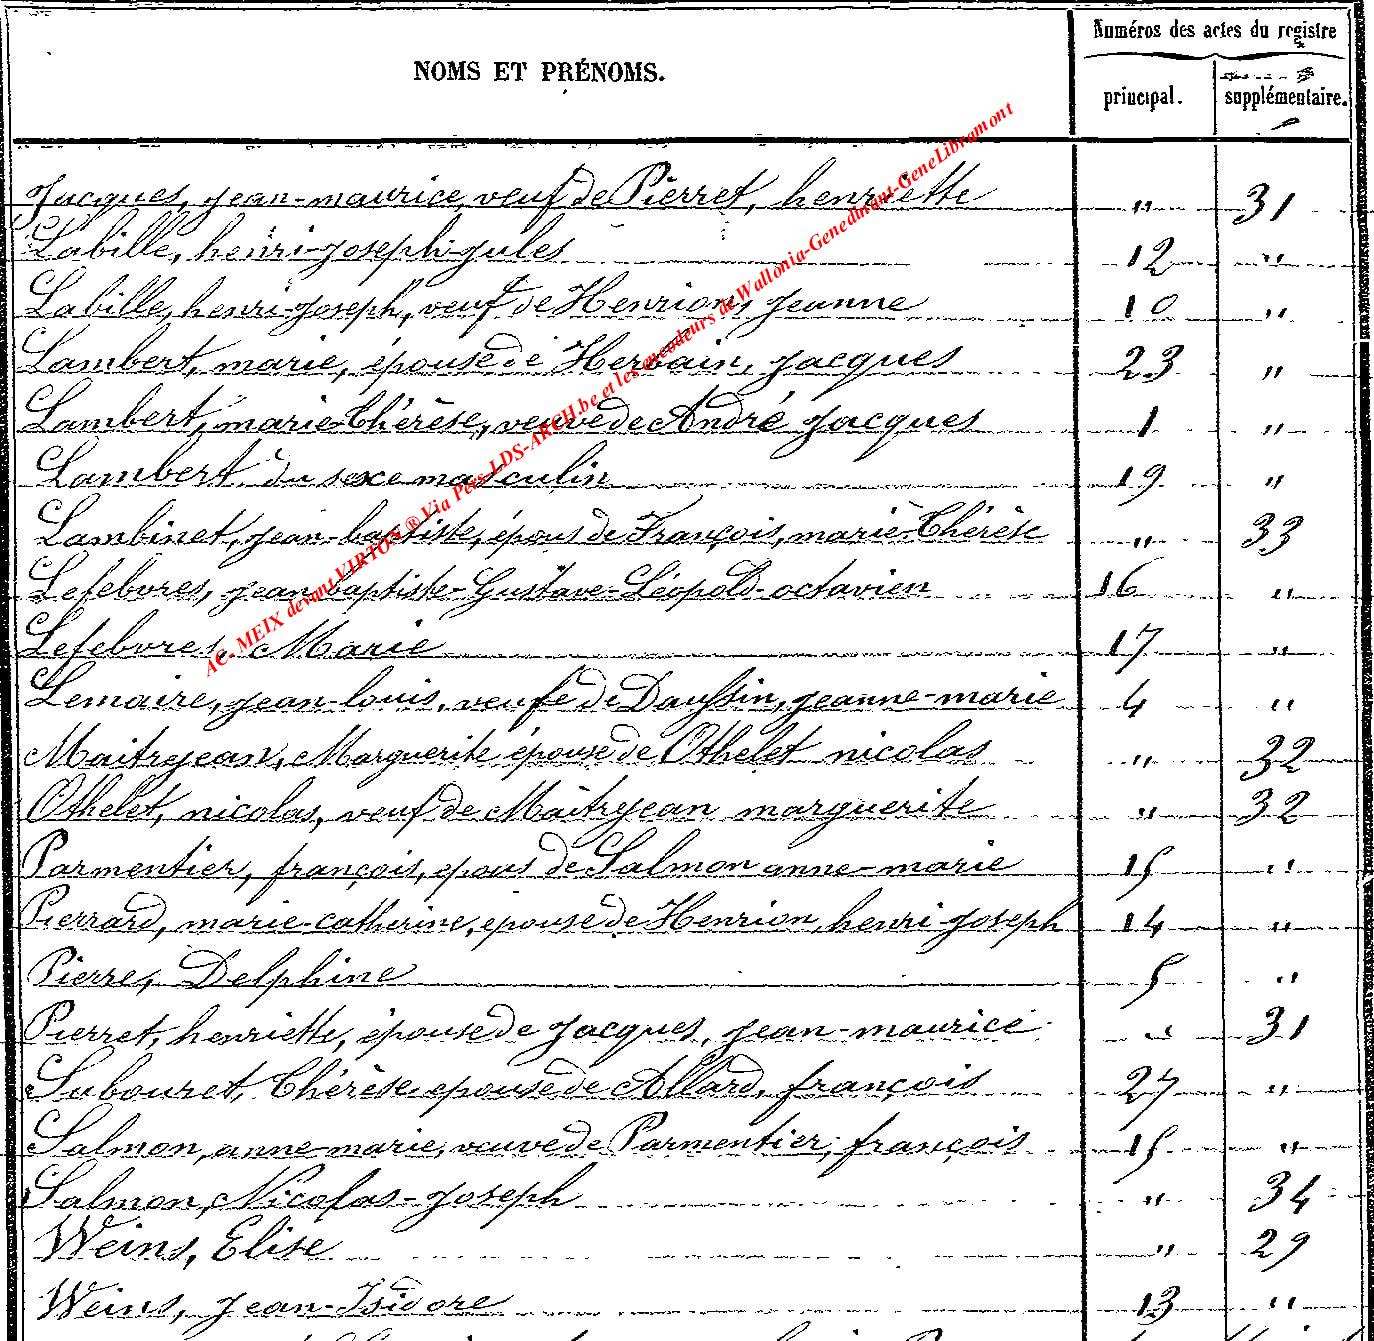 Numéros des actes du registre
NOMS ET PRÉNOMS.
principal. supplémentaire.
Jacques, jean-maurice, veuf de Pierret, henriette " 31
Labille, henri-joseph-jules 12 "
Labille, henri-joseph, veuf de Henrion, jeanne 10 "
Lambert, marie, épouse de Herbain, jacques 23 "
Lambert, marie-Thérèse, veuve de André jacques 1 "
Lambert, du sexe masculin 19 "
Lambinet, jean-baptiste, époux de François, marie-Thérèse " 33
Lefebvres, jean-baptiste-Gustave-Léopold-octavien 16 "
Lefebvres, Marie 17 "
Lemaire, jean-louis, veufe de Daussin, jeanne-marie 4 "
Maitrejean, Marguerite épouse de Othelet nicolas " 32
Othelet, nicolas, veuf de Maîtrejean marguerite " 32
Parmentier, françois, epous de Salmon anne-marie 15 "
Pierrard, marie-catherine, epouse de Henrion, henri-joseph 14 "
Pierre, Delphine 5 "
Pierret, henriette, épouse de jacques, jean-maurice " 31
Subouret, Thérèse epouse de Allard, françois 27 "
Salmon, anne-marie, veuve de Parmentier, françois 15 "
Salmon, Nicolas-joseph " 34
Weins, Elise " 29
Weins, jean-Isidore 13 "
AC. MEIX devant VIRTON ® Via Pers-LDS-ARCH.be et les encodeurs de Wallonia-Genedinant-GeneLibramont